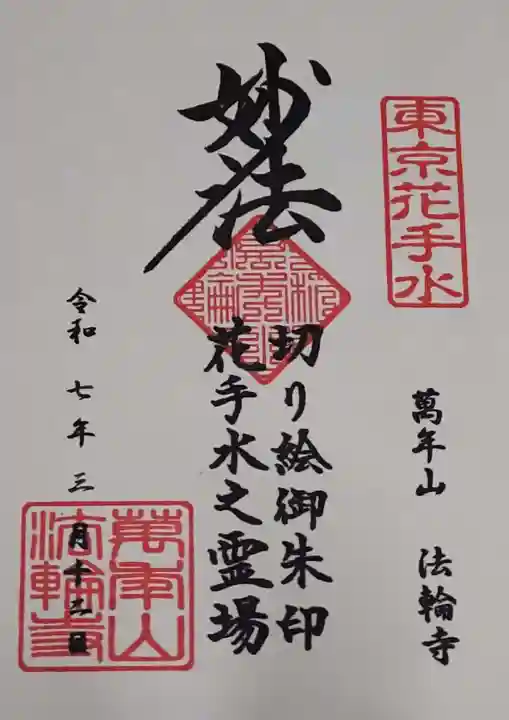 東京花手水
萬年山　法輪寺
妙法
切り絵御朱印
花手水之霊場
令和七年三月十二日
萬年山
法輪寺